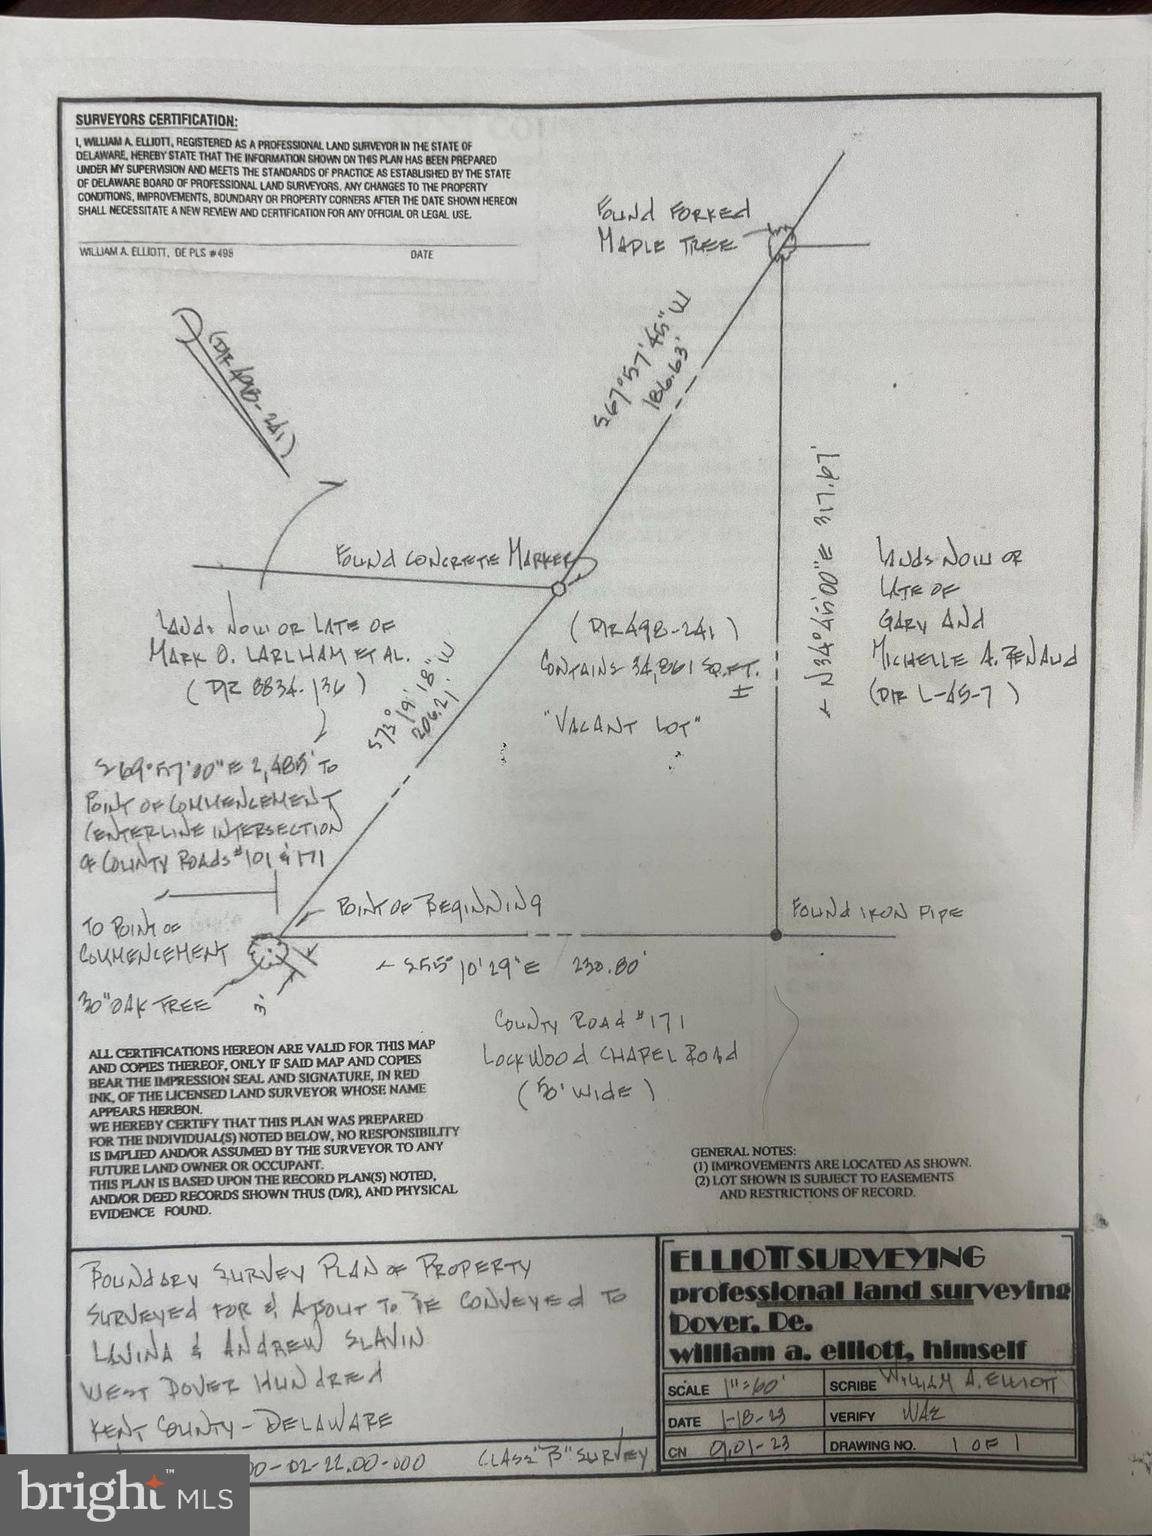 SURVEYORS CERTIFICATION:
I, WILLIAM A. ELLIOTT, REGISTERED AS A PROFESSIONAL LAND SURVEYOR IN THE STATE OF
DELAWARE, HEREBY STATE THAT THE INFORMATION SHOWN ON THIS PLAN HAS BEEN PREPARED
UNDER MY SUPERVISION AND MEETS THE STANDARDS OF PRACTICE AS ESTABLISHED BY THE STATE
OF DELAWARE BOARD OF PROFESSIONAL LAND SURVEYORS. ANY CHANGES TO THE PROPERTY
CONDITIONS, IMPROVEMENTS, BOUNDARY OR PROPERTY CORNERS AFTER THE DATE SHOWN HEREON
SHALL NECESSITATE A NEW REVIEW AND CERTIFICATION FOR ANY OFFICIAL OR LEGAL USE.
WILLIAM A. ELLIOTT, DE PLS #498 DATE
FOUND FORKED
MAPLE TREE
(D/R 498-241)
S 67° 57' 45" W
186.63'
FOUND CONCRETE MARKER
N 34° 45' 00" E 317.67'
LANDS NOW OR
LATE OF
GARY AND
MICHELLE A. BENAUD
(D/R L-45-7)
LANDS NOW OR LATE OF
MARK O. LARLHAM ET AL.
(D/R 8834-136)
(D/R 498-241)
CONTAINS 34,861 SQ.FT.
±
"VACANT LOT"
S 73° 19' 18" W
206.21'
S 69° 57' 00" E 2,485' TO
POINT OF COMMENCEMENT
CENTERLINE INTERSECTION
OF COUNTY ROADS #101 & 171
POINT OF BEGINNING
FOUND IRON PIPE
TO POINT OF
COMMENCEMENT
30" OAK TREE
3'
S 55° 10' 29" E 230.80'
COUNTY ROAD #171
LOCKWOOD CHAPEL ROAD
(50' WIDE)
ALL CERTIFICATIONS HEREON ARE VALID FOR THIS MAP
AND COPIES THEREOF, ONLY IF SAID MAP AND COPIES
BEAR THE IMPRESSION SEAL AND SIGNATURE, IN RED
INK, OF THE LICENSED LAND SURVEYOR WHOSE NAME
APPEARS HEREON.
WE HEREBY CERTIFY THAT THIS PLAN WAS PREPARED
FOR THE INDIVIDUAL(S) NOTED BELOW, NO RESPONSIBILITY
IS IMPLIED AND/OR ASSUMED BY THE SURVEYOR TO ANY
FUTURE LAND OWNER OR OCCUPANT.
THIS PLAN IS BASED UPON THE RECORD PLAN(S) NOTED,
AND/OR DEED RECORDS SHOWN THUS (D/R), AND PHYSICAL
EVIDENCE FOUND.
GENERAL NOTES:
(1) IMPROVEMENTS ARE LOCATED AS SHOWN.
(2) LOT SHOWN IS SUBJECT TO EASEMENTS
AND RESTRICTIONS OF RECORD.
BOUNDARY SURVEY PLAN OF PROPERTY
SURVEYED FOR & ABOUT TO BE CONVEYED TO
LAVINA & ANDREW SLAVIN
WEST DOVER HUNDRED
KENT COUNTY - DELAWARE
00-02-22.00-000 CLASS "B" SURVEY
ELLIOTT SURVEYING
professional land surveying
Dover, De.
william a. elliott, himself
SCALE 1"=60' SCRIBE WILLIAM A. ELLIOTT
DATE 1-18-23 VERIFY WAE
CN 01,01-23 DRAWING NO. 1 OF 1
bright MLS